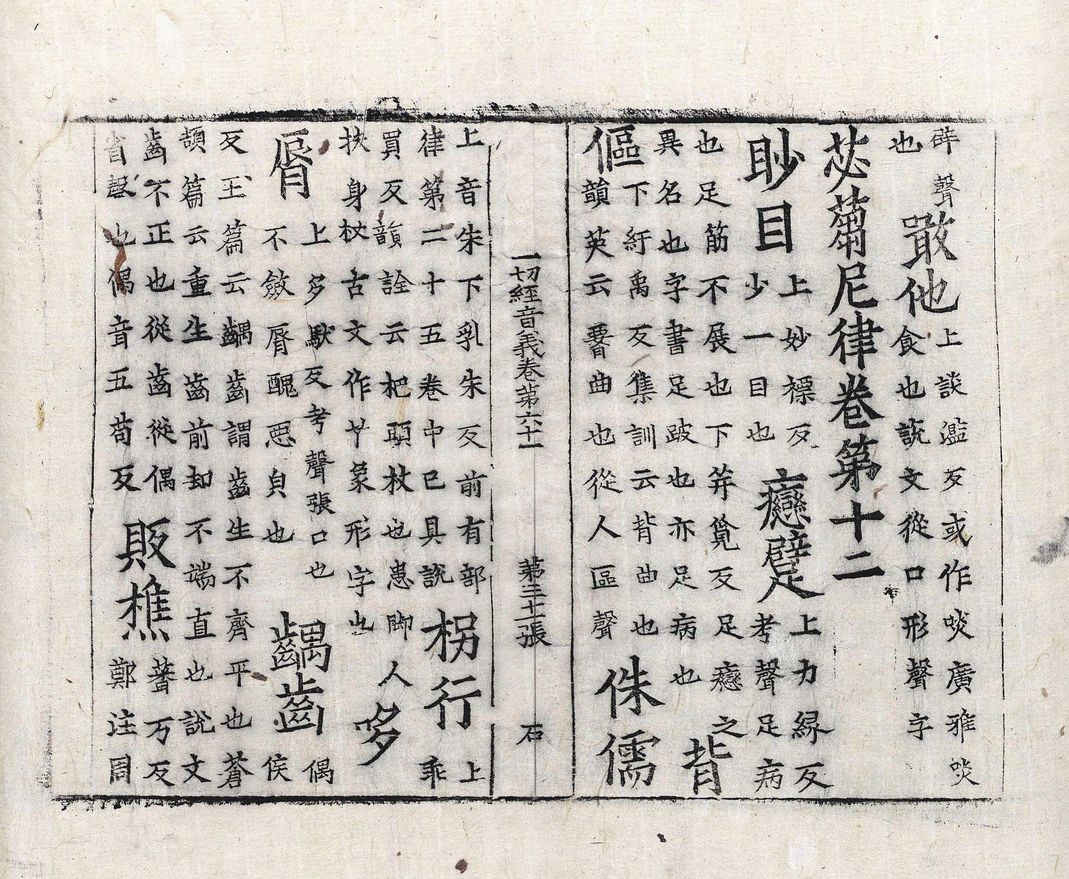 辥聲
也
噉他
上談濫反或作啖廣雅啖
食也說文從口形聲字
苾蒭尼律卷第十二
眇目
上妙標反
少一目也
癵躄
上力緣反
考聲足病
也足筋不展也下并覓反足癵之
異名也字書足跛也亦足病也
背
傴
下紆禹反集訓云背曲也
韻英云曲也從人區聲
侏儒
一切經音義卷第六十一 第三十二張 石
上音朱下乳朱反前有部
律第二十五卷中已具說
柺行
上
乖
買反韻詮云杷頭杖也患脚人
扶身杖古文作象形字也
哆
脣
上多馱反考聲張口也
不斂脣醜惡皃也
齵齒
偶
侯
反玉篇云齵齒謂齒生不齊平也蒼
頡篇云重生齒前却不端直也說文
齒不正也從齒從偶
省聲也偶音五苟反
販樵
蕃万反
鄭注周